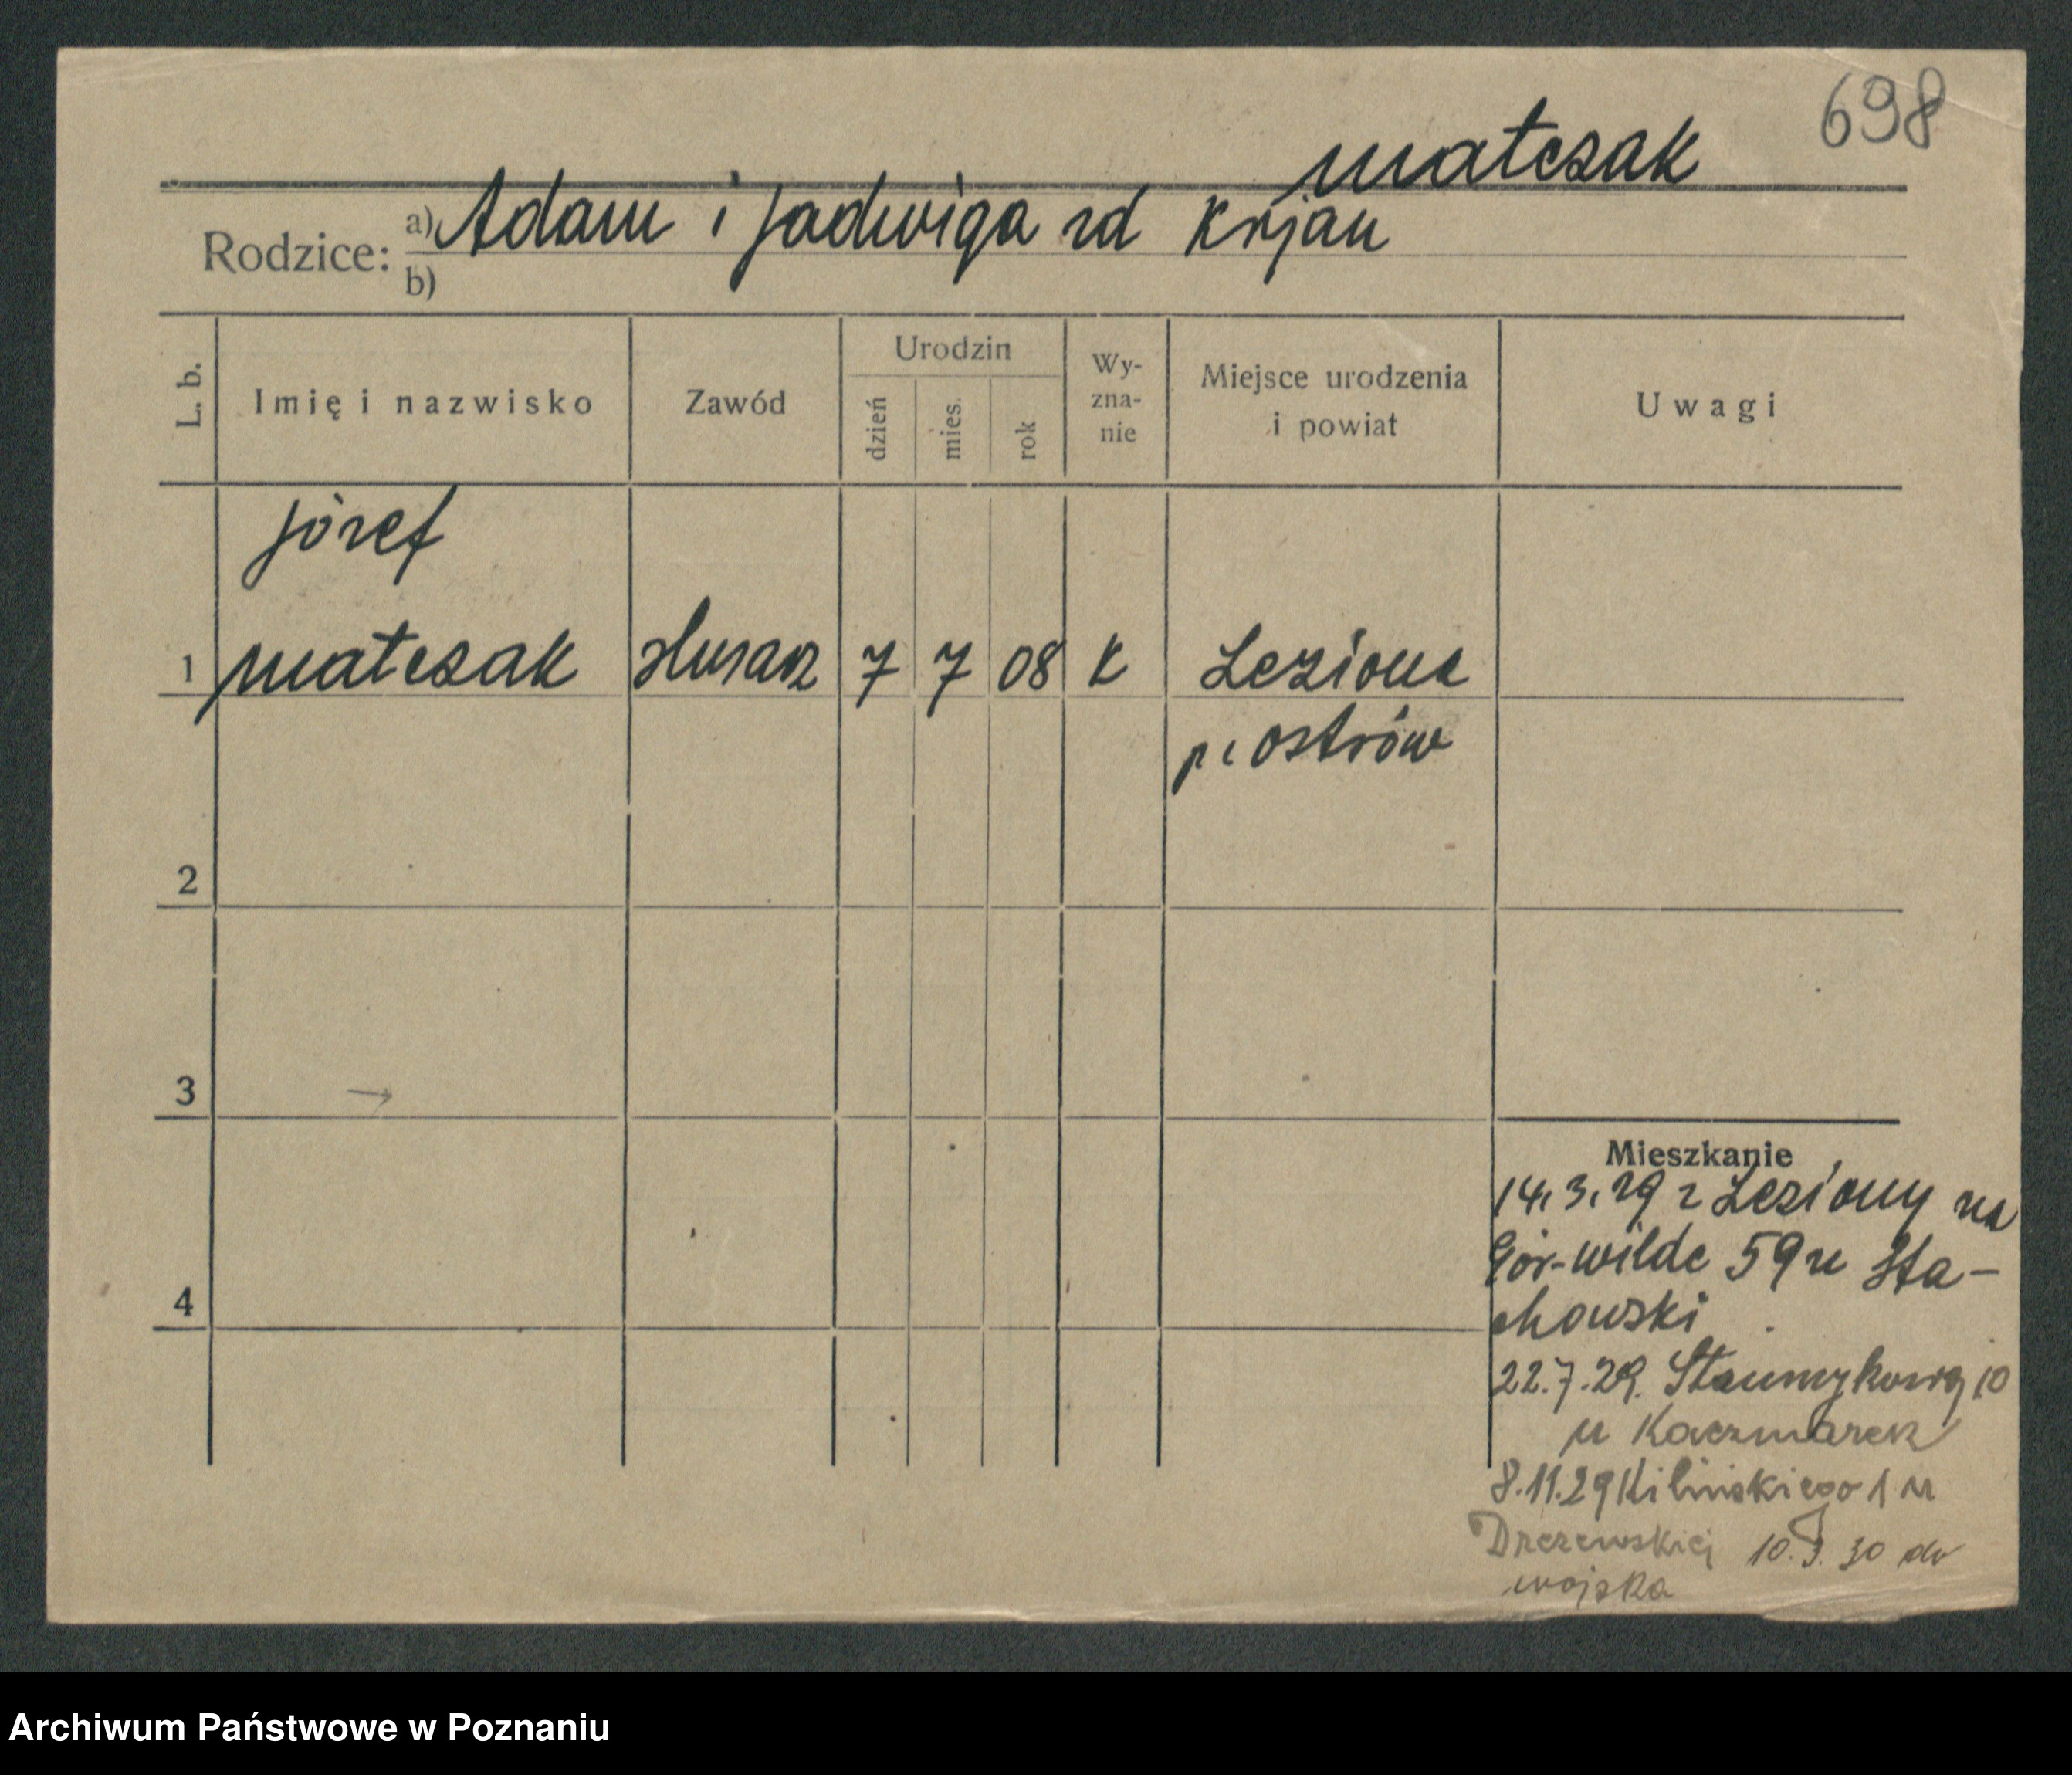 698
Matczak
Rodzice: a) Adam i Jadwiga zd Krjan
b)
L. b.
Imię i nazwisko
Zawód
Urodzin
dzień
mies.
rok
Wy-
zna-
nie
Miejsce urodzenia
i powiat
Uwagi
Józef
1 Matczak ślusarz 7 7 08 k Leziona
p. Ostrów
2
3
4
Mieszkanie
14.3.29 z Leziony na
Gór-Wilde 59 u Sta-
chowski
22.7.29. 10
u Kaczmarek
8.11.29 Kilińskiego 1 u
Drzezewskiej 10.3.30 do
wojska
Archiwum Państwowe w Poznaniu